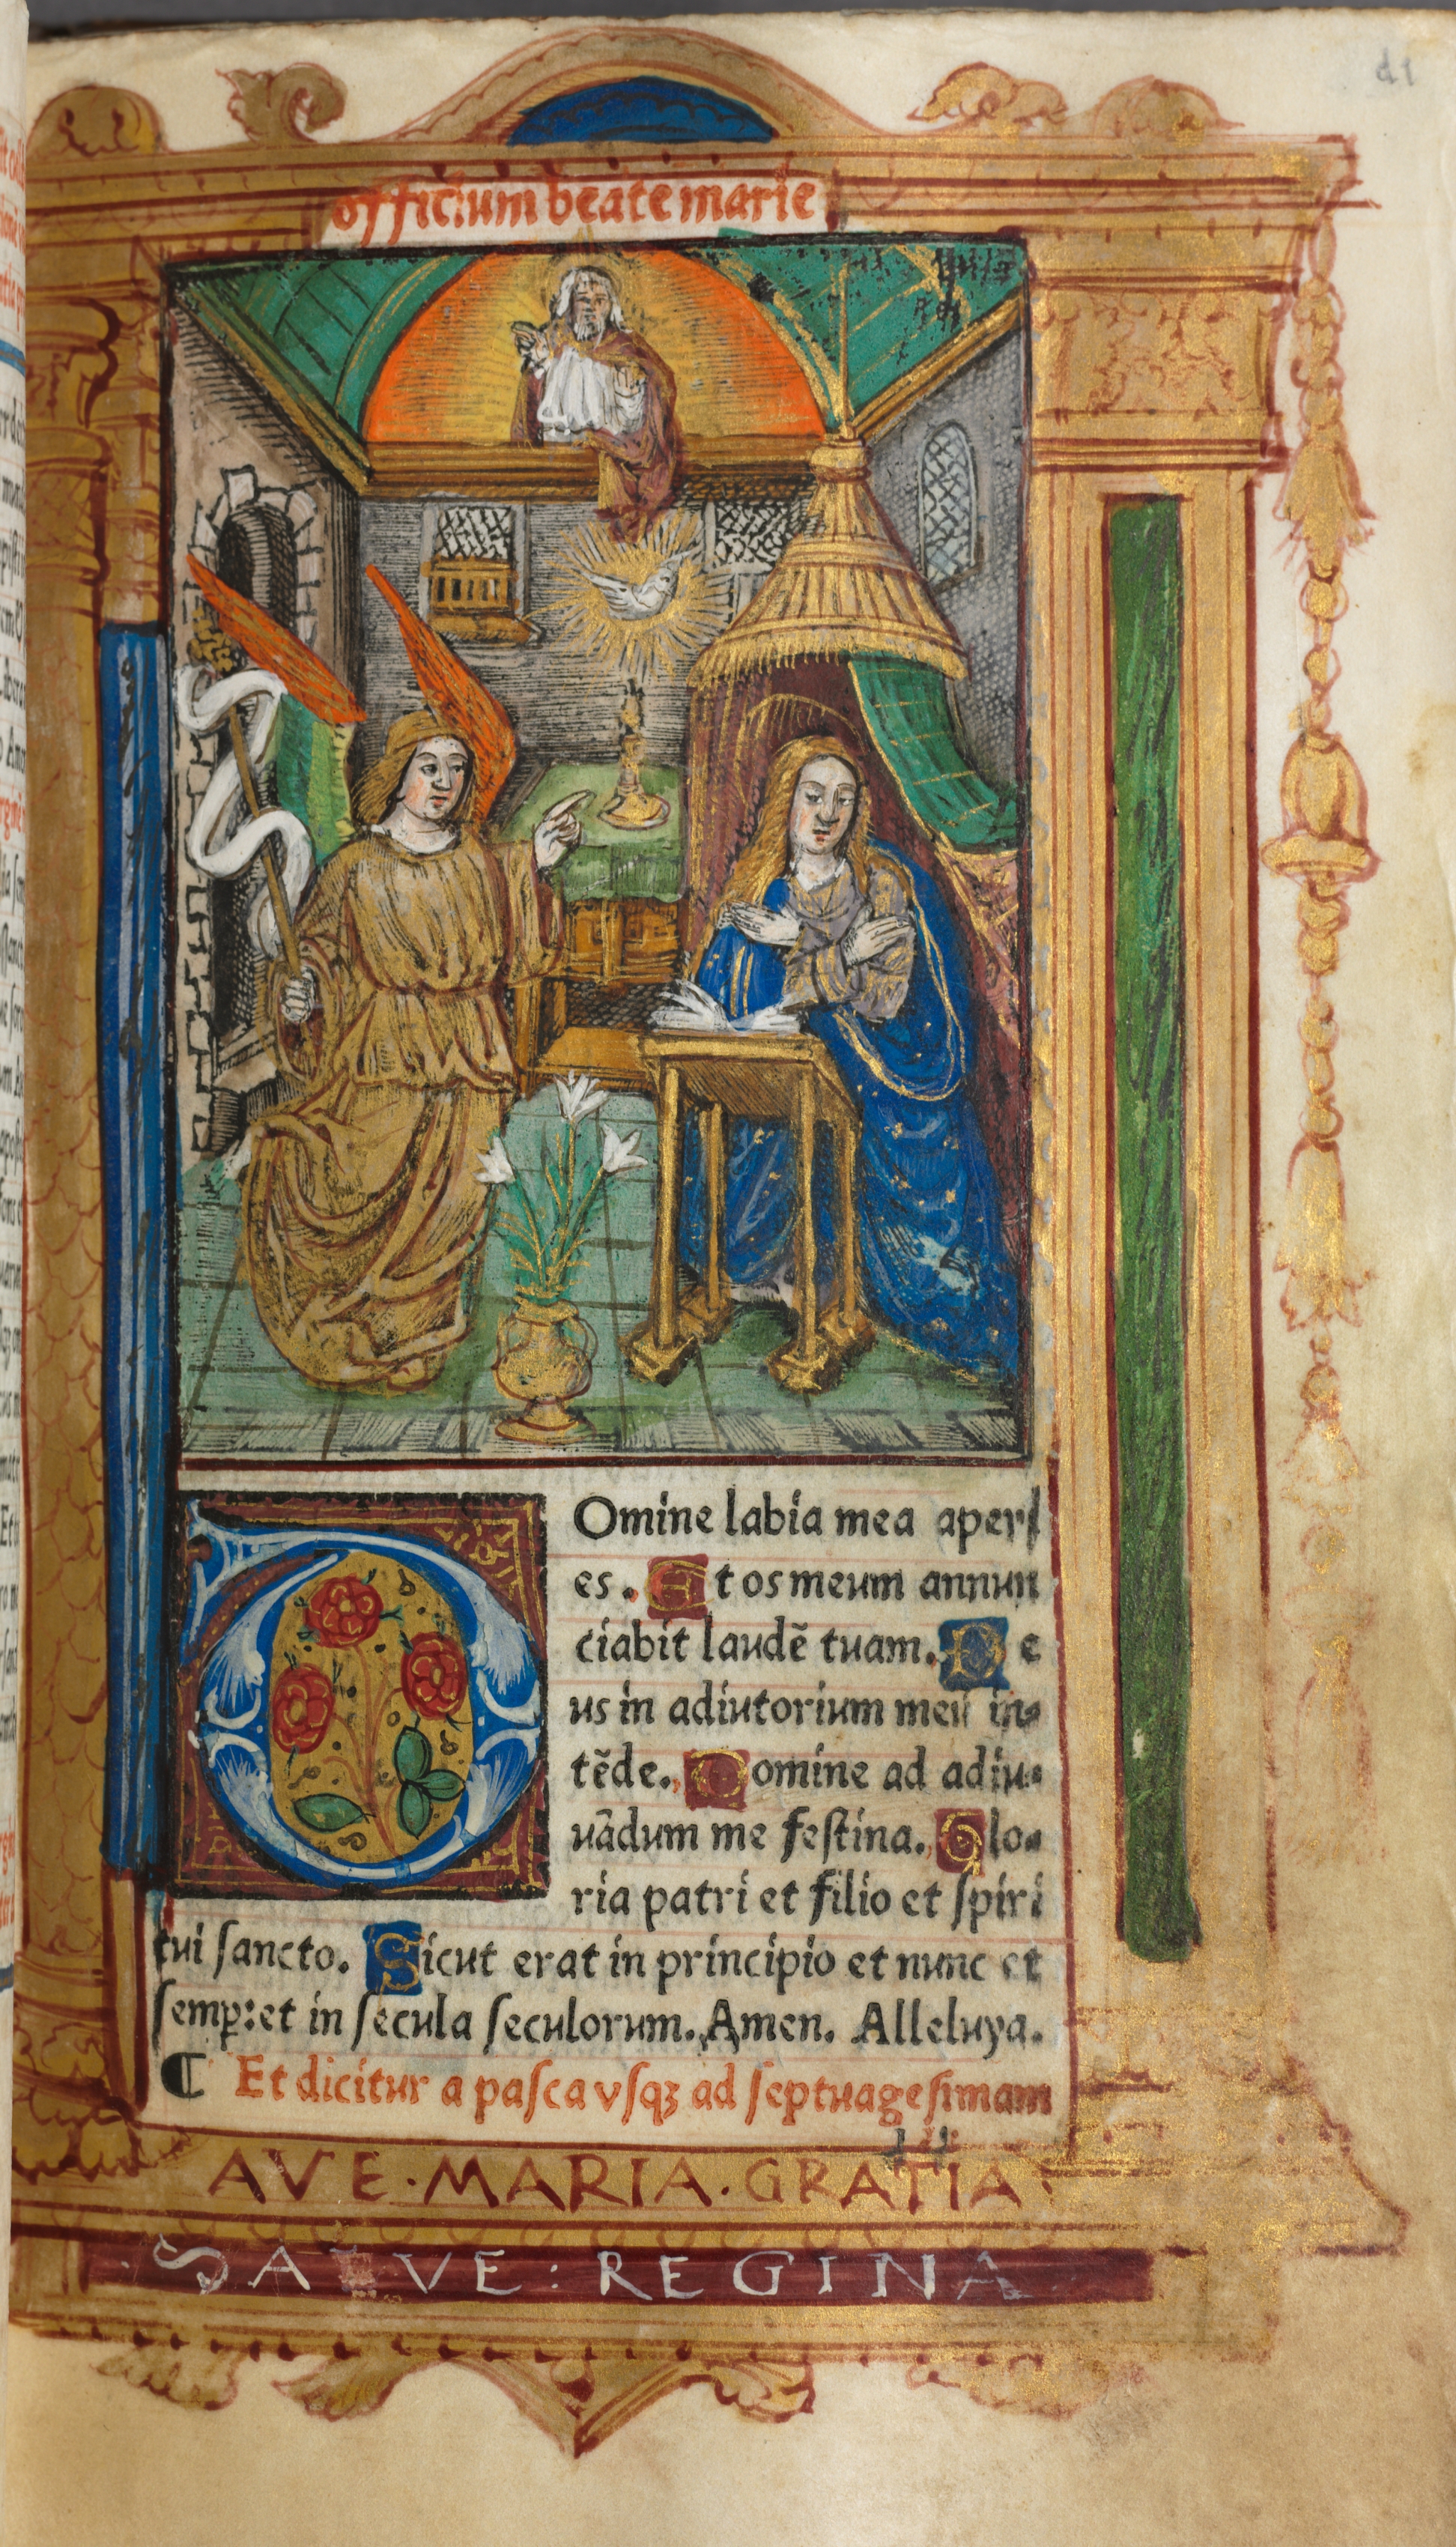 d1
officium beate marie
Omine labia mea aperi
es. Et os meum annun
ciabit laudẽ tuam. De
us in adiutorium meũ in-
tẽde. Domine ad adiu-
uãdum me feſtina. Glo-
ria patri et filio et ſpiri
tui ſancto. Sicut erat in principio et nunc et
ſemꝑ: et in ſecula ſeculorum. Amen. Alleluya.
¶ Et dicitur a paſca vſqꝫ ad ſeptuageſimam
AVE·MARIA·GRATIA·
·SALVE:REGINA